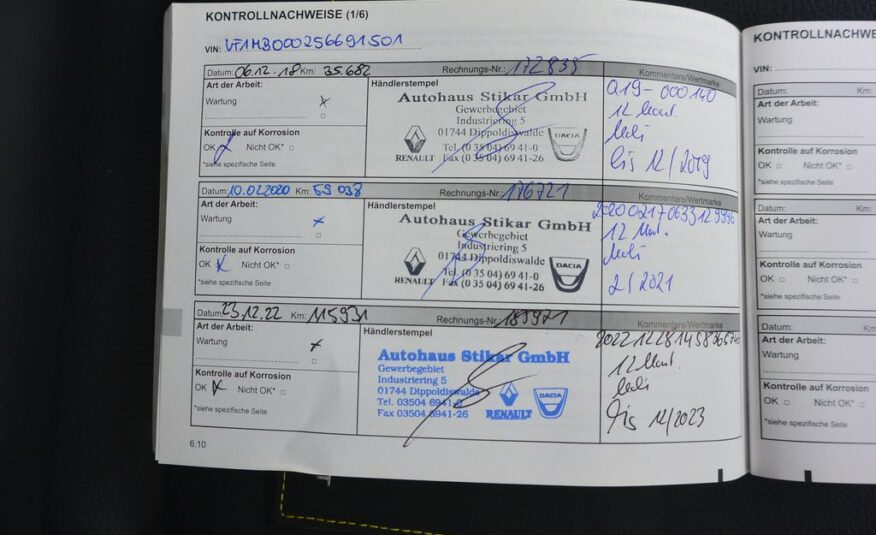 KONTROLLNACHWEISE (1/6)
VIN: VF1MB000256691501
Datum: 06.12.18 Km: 35.682 Rechnungs-Nr.: 172835 Kommentare/Wertmarke
Art der Arbeit:
Wartung x
Kontrolle auf Korrosion
OK Nicht OK*
*siehe spezifische Seite
Händlerstempel
Autohaus Stikar GmbH
Gewerbegebiet
Industriering 5
01744 Dippoldiswalde
Tel. (0 35 04) 69 41-0
Fax (0 35 04) 69 41-26
RENAULT DACIA
Q19-000140
12 Mont.
bis 12/2019
Datum: 10.02.2020 Km: 59 038 Rechnungs-Nr.: 176721 Kommentare/Wertmarke
Art der Arbeit:
Wartung x
Kontrolle auf Korrosion
OK x Nicht OK*
*siehe spezifische Seite
Händlerstempel
Autohaus Stikar GmbH
Gewerbegebiet
Industriering 5
01744 Dippoldiswalde
Tel. (0 35 04) 69 41-0
Fax (0 35 04) 69 41-26
RENAULT DACIA
20200217063312 9996
12 Mont.
2/2021
Datum: 23.12.22 Km: 115931 Rechnungs-Nr.: 189921 Kommentare/Wertmarke
Art der Arbeit:
Wartung x
Kontrolle auf Korrosion
OK x Nicht OK*
*siehe spezifische Seite
Händlerstempel
Autohaus Stikar GmbH
Gewerbegebiet
Industriering 5
01744 Dippoldiswalde
Tel. 03504 6941-0
Fax 03504 6941-26
RENAULT DACIA
12 Mont.
Bis 12/2023
6.10
KONTROLLNACHWE
VIN:
Datum: Km:
Art der Arbeit:
Wartung
Kontrolle auf Korrosion
OK Nicht OK*
*siehe spezifische Seite
Datum: Km:
Art der Arbeit:
Wartung
Kontrolle auf Korrosion
OK Nicht OK*
*siehe spezifische Seite
Datum: Km:
Art der Arbeit:
Wartung
Kontrolle auf Korrosion
OK Nicht OK*
*siehe spezifische Seite